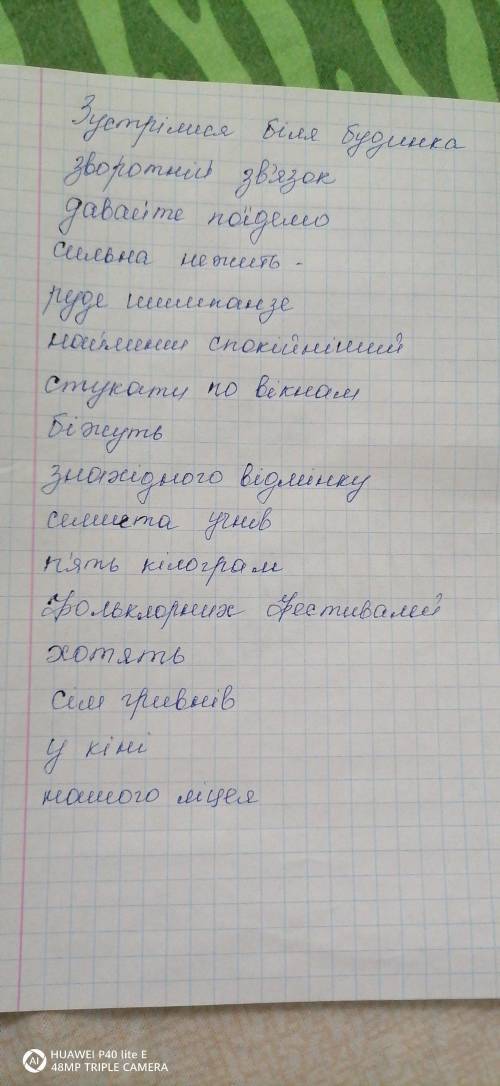 Зустрілися біля будинка
зворотній зв'язок
давайте поїдемо
сильна нежить -
руде шимпанзе
найлиш спокійніший
стукати по вікнам
біжуть
знахідного відмінку
семиста учнів
п'ять кілограм
Фольклорних Фестивалей
хотять
сім гривнів
у кіні
нашого ліцея
HUAWEI P40 lite E
48MP TRIPLE CAMERA